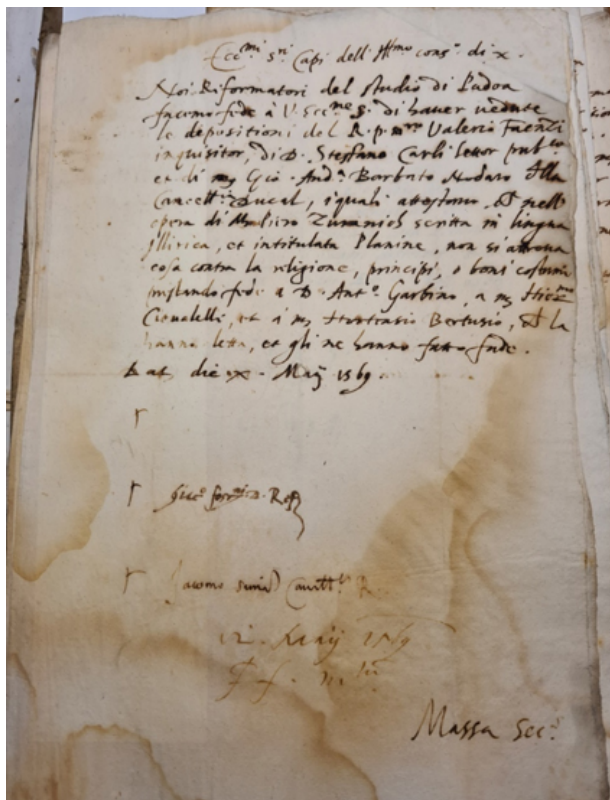 Ecc.mi s.ri Capi dell' Ill.mo cons.o di x.
Noi Riformatori del studio di Padoa
facemo fede à V. Ecc.me S. di haver vedute
le depositioni del R. p. m.ro Valerio Faenti
inquisitor, di D. Steffano Carli lettor pub.co
et di mg Gio. And.a Barbato Nodaro Alla
Cancell.a Ducal, i quali attestano, nell'
opera di scritta in lingua
Illirica, et intitulata Planine, non si attrova
cosa contra la religione, principi, o boni costumi
prestando fede a D. Ant.o Garbino, a mg Hier.mo
et à mg Hortensio Bertusio, la
hanno letta, et gli ne hanno fatto fede.
Dat. die x. Maij 1569
Jacomo
Maij 1569
Massa Sec.o